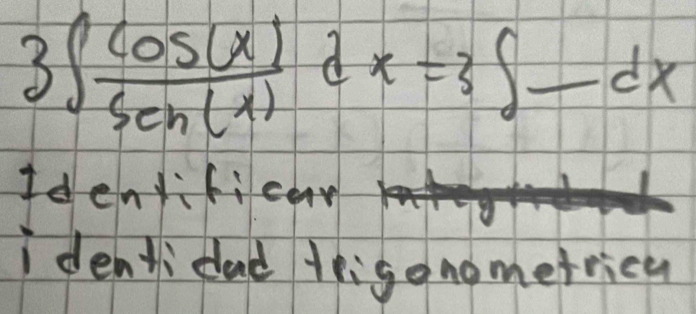 3∫ cos(x)/sen(x) dx = 3∫ — dx
Identificar
identidad trigonometrica